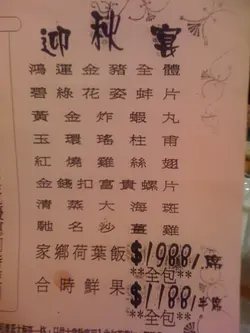 迎秋宴
鴻運金豬全體
碧綠花姿蚌片
黃金炸蝦丸
玉環瑤柱甫
紅燒雞絲翅
金錢扣富貴螺片
清蒸大海斑
馳名沙薑雞
家鄉荷葉飯
合時鮮果
$1988/席
**全包**
$1188/半席
**全包**